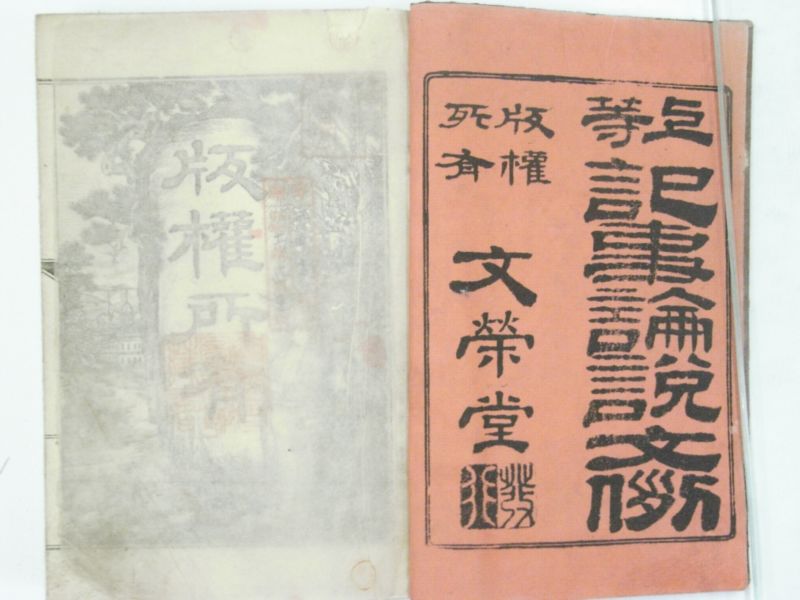 上等
記事論説文例
版權
所有
文榮堂
版權所有